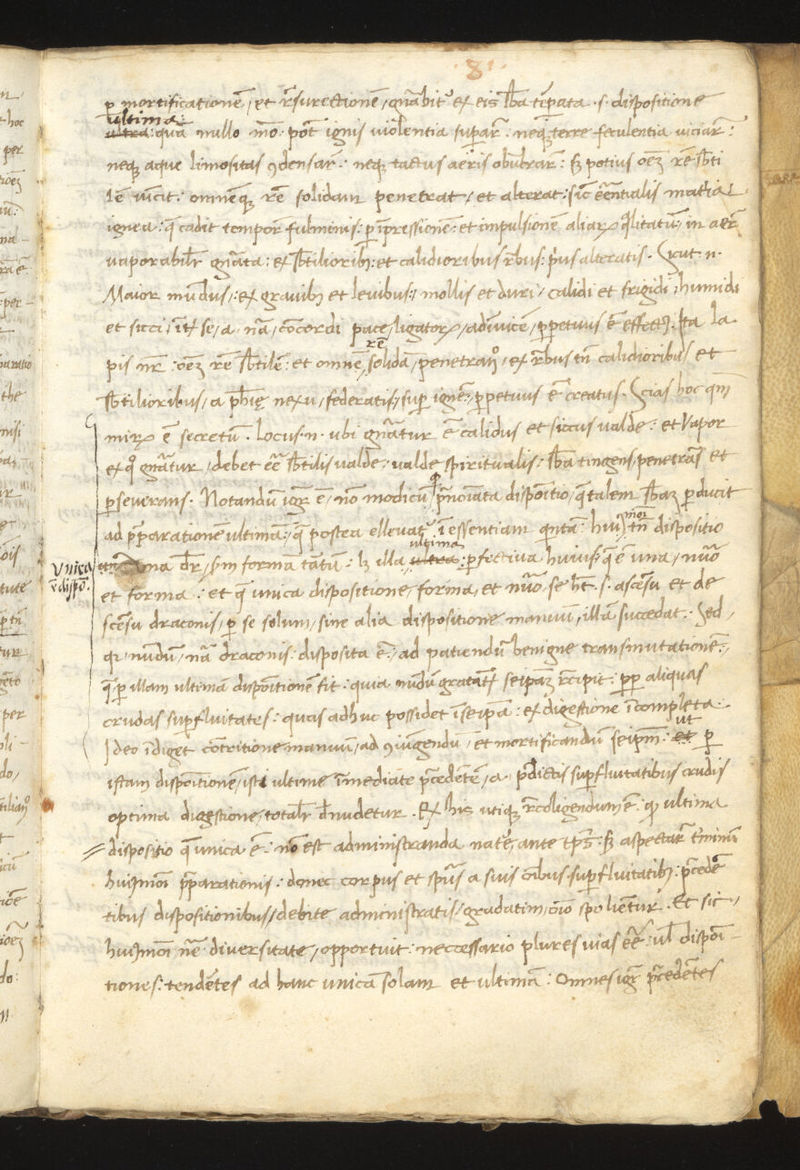 81
ꝑ mortificationē / et r̄surectionē / gn̄abit᷑ ex eis sb̄a tēperata .s. dispositione
ultima
ultra: qua nullo mō pōt ignis uiolentia suꝑar̄: neqꝫ terre feculentia uiciar̄:
neqꝫ aque limositas ꝯdensar̄: neqꝫ tactus aeris obūbrar̄: sꝫ potius oēꝫ rē sb̄ti
lē uīcit: omnēqꝫ rē solidam penetrat / et alterat: sic̄ eēntialis matia
ignea: q̄ cadit tempor̄ fulminis: ꝑ īpressionē: et impulsionē aliaꝝ q̄litatū in aerē
uaporabilr̄ gn̄ata: ex sb̄tilioribꝫ: et calidioribus r̄bus: prius alteratis. Sicut .n.
Maior mūdus /: ex grauibꝫ et leuibus: / mollis et duri / calidi et frigidi / humidi
et sicci / īt̄ se / a nā / cōcordi pace / ligatoꝝ / adīuicē / ꝑpetuus ē effectꝰ. Ita la
rē
pis nr̄: oēꝫ rē sb̄tilē: et omnē solidā / penetranſ / ex r̄bus tn̄ calidioribus et
sb̄tilioribus / a ph̄ię nexu / federatis / suꝑ ignē / ꝑpetuus ē creatus. Scias hoc qm̄
miꝝ ē secretū. Locus .n. ubi gn̄atur ē calidus et siccus ualde: et uapor
ex qͦ gn̄atur / debet eē sb̄tilis ualde / ualde spiritualis: sb̄a tingens / penetrās et
ꝑseuerans. Notandū igr̄ ē / nō modicū / prn̄oīata dispōitio / q̄ talem sb̄aꝫ ꝑducit
ad prparationē ultimā: / q̄ postea elleuat᷑ ī essentiam quintā: huiꝰ tn̄ dispositio
ultima
na dr̄ / sm̄ formā tātū: lꝫ illa ultra: ꝑfectiua huiusꝫ q̄ ē una / nūo
Vnica
ē dispō
et forma: et q̄ unica dispositione forma / et nūo se hēt .s. ascēsu et de
scēsu draconis / ꝑ se solum / sine alia dispositione manuū / illā succedat. Sed /
qꝛ nūdū / nā draconis disposita ē / ad patiendū benigne transmutationē /
q̄ ꝑ illam ultimā dispōitionē fit: quia nūdū seipaꝫ r̄cipit: ꝓp aliquas
crudas suꝑfluitates: quas adhuc possidet ī seipā: ex digestione īcompleta.
ut
Ideo īdiget cōtritione manuū / ad ꝯiūgendū / et mortificandū seipm̄: et ꝑ
istam dispōitionē / isti ultime īmediate prcedētē / a prdictis suꝑfluitatibus crudis
optima digestione / totalr̄ dnudetur. Ex his utiqꝫ r̄coligendum ē. qꝫ ultima
dispositio q̄ unica ē: nō est administranda natē ante tp̄s: sꝫ aspectar̄ t̄minū
huiꝰmōi prparationis: donec corpus et spūs a suis oībus suꝑfluitatibꝫ: prcedē
tibus dispositionibus / debite administratis / gradatim / oīo spolientur. Et sic /
huiꝰmōi nē diuersitate / opportuit neccessario plures uias eē: ul̄ dispōi
tiones: tendētes ad hanc unicā solam et ultimā: Omnes igr̄ prcedētes